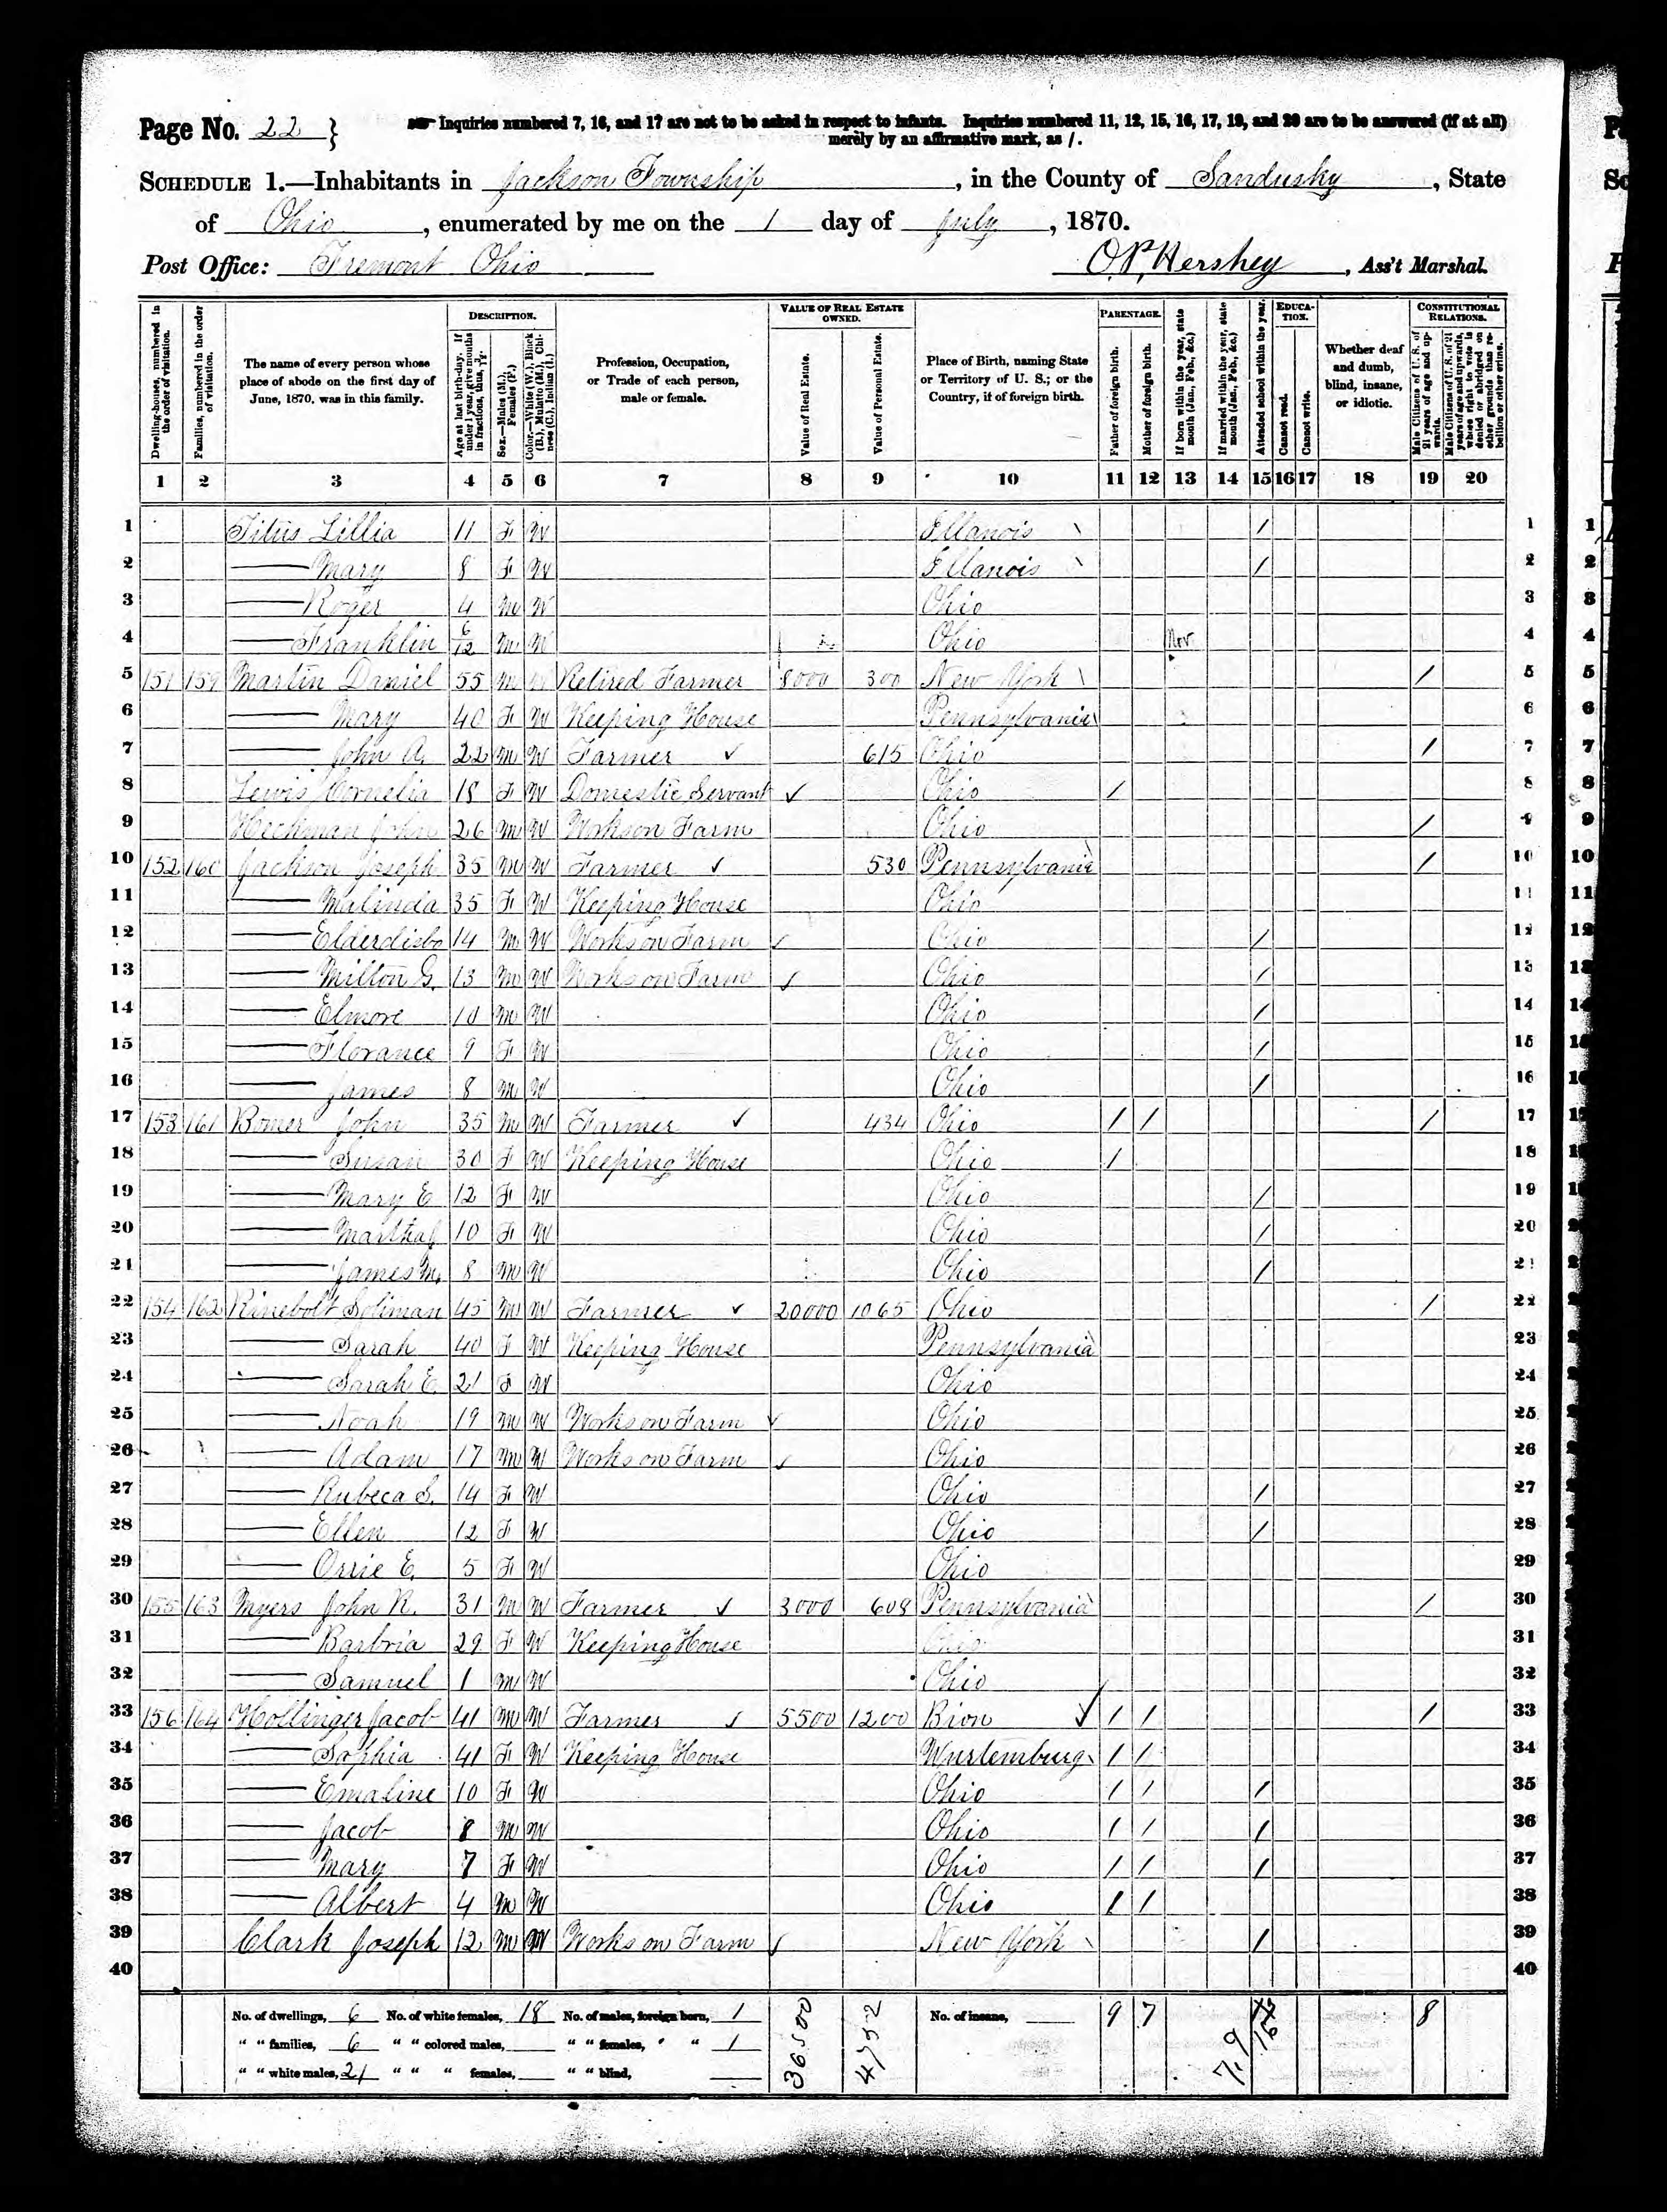 Page No. 22 }
Inquiries numbered 7, 16, and 17 are not to be asked in respect to infants. Inquiries numbered 11, 12, 15, 16, 17, 19, and 20 are to be answered (if at all)
merely by an affirmative mark, as /.
SCHEDULE 1.—Inhabitants in Jackson Township, in the County of Sandusky, State
of Ohio, enumerated by me on the 1 day of July, 1870.
Post Office: Fremont Ohio O.P. Hershey, Ass't Marshal.
Dwelling-houses, numbered in the order of visitation.
Families, numbered in the order of visitation.
The name of every person whose place of abode on the first day of June, 1870, was in this family.
DESCRIPTION.
Age at last birth-day. If under 1 year, give months in fractions, thus, 3/12.
Sex.—Males (M.), Females (F.)
Color.—White (W.), Black (B.), Mulatto (M.), Chinese (C.), Indian (I.)
Profession, Occupation, or Trade of each person, male or female.
VALUE OF REAL ESTATE OWNED.
Value of Real Estate.
Value of Personal Estate.
Place of Birth, naming State or Territory of U. S.; or the Country, if of foreign birth.
PARENTAGE.
Father of foreign birth.
Mother of foreign birth.
If born within the year, state month (Jan., Feb., &c.)
If married within the year, state month (Jan., Feb., &c.)
Attended school within the year.
EDUCATION.
Cannot read.
Cannot write.
Whether deaf and dumb, blind, insane, or idiotic.
CONSTITUTIONAL RELATIONS.
Male Citizens of U. S. of 21 years of age and upwards.
Male Citizens of U. S. of 21 years of age and upwards, whose right to vote is denied or abridged on other grounds than rebellion or other crime.
1 2 3 4 5 6 7 8 9 10 11 12 13 14 15 16 17 18 19 20
1 Titus Lillia 11 F W Illanois / 1
2 Mary 8 F W Illanois / 2
3 Roger 4 M W Ohio 3
4 Franklin 6/12 M W Ohio Nov. 4
5 151 159 Martin Daniel 55 M W Retired Farmer 8000 300 New York / 5
6 Mary 40 F W Keeping House Pennsylvania 6
7 John A. 22 M W Farmer ✓ 615 Ohio / 7
8 Lewis Cornelia 18 F W Domestic Servant ✓ Ohio / 8
9 Heckman John 26 M W Works on Farm Ohio / 9
10 152 160 Jackson Joseph 35 M W Farmer ✓ 530 Pennsylvania / 10
11 Malinda 35 F W Keeping House Ohio 11
12 14 M W Works on Farm ✓ Ohio / 12
13 Milton G. 13 M W Works on Farm ✓ Ohio / 13
14 Elmore 10 M W Ohio / 14
15 Florance 9 F W Ohio / 15
16 James 8 M W Ohio / 16
17 153 161 Bomer John 35 M W Farmer ✓ 434 Ohio / / / 17
18 Susan 30 F W Keeping House Ohio / 18
19 Mary E 12 F W Ohio / 19
20 Martha J 10 F W Ohio / 20
21 James M. 8 M W Ohio / 21
22 154 162 Rinebolt Soliman 45 M W Farmer ✓ 20000 1065 Ohio / 22
23 Sarah 40 F W Keeping House Pennsylvania 23
24 Sarah E. 21 F W Ohio 24
25 Noah 19 M W Works on Farm ✓ Ohio 25
26 Adam 17 M W Works on Farm ✓ Ohio 26
27 Rubeca S. 14 F W Ohio / 27
28 Ellen 12 F W Ohio / 28
29 Orrie E. 5 F W Ohio 29
30 155 163 Myers John R. 31 M W Farmer ✓ 3000 608 Pennsylvania / 30
31 Barbria 29 F W Keeping House Ohio 31
32 Samuel 1 M W Ohio 32
33 156 164 Hollinger Jacob 41 M W Farmer ✓ 5500 1200 ✓ / / / 33
34 Sophia 41 F W Keeping House Wurtemburg / / 34
35 Emaline 10 F W Ohio / / / 35
36 Jacob 8 M W Ohio / / / 36
37 Mary 7 F W Ohio / / / 37
38 Albert 4 M W Ohio / / 38
39 Clark Joseph 12 M W Works on Farm ✓ New York / 39
40 40
No. of dwellings, 6 No. of white females, 18 No. of males, foreign born, 1 36500 4752 No. of insane, 9 7 16 8
" " families, 6 " " colored males, " " females, " " 1 7,9
" " white males, 21 " " " females, " " blind,